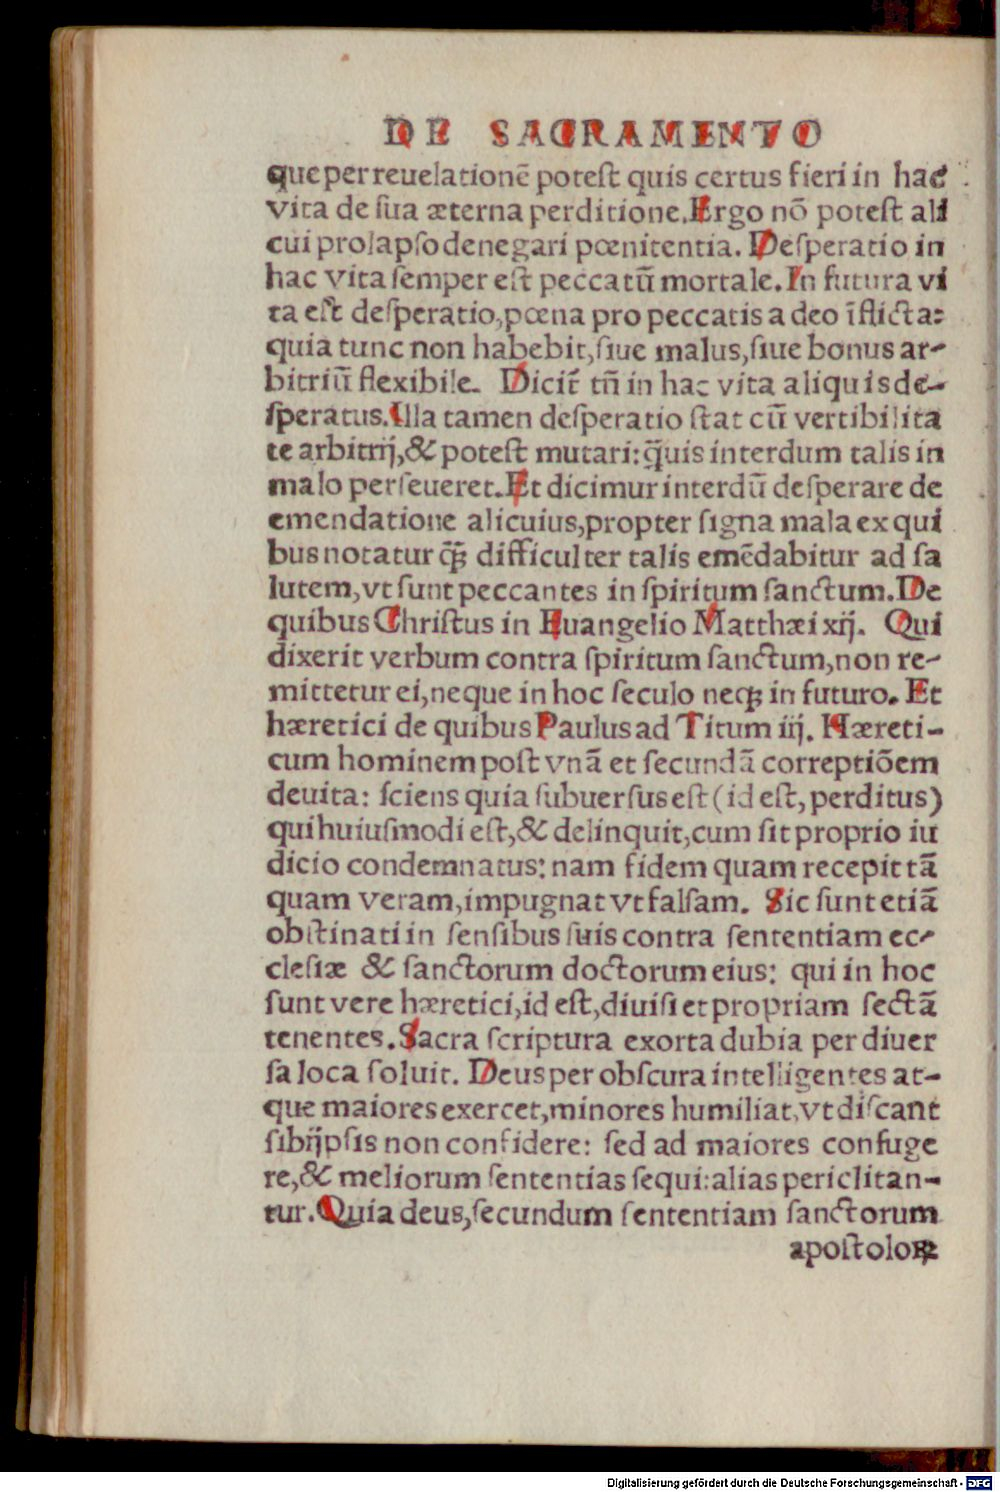 DE SACRAMENTO
que per reuelationē poteſt quis certus fieri in hac
vita de ſua æterna perditione. Ergo nō poteſt ali
cui prolapſo denegari pœnitentia. Deſperatio in
hac vita ſemper eſt peccatū mortale. In futura vi
ta eſt deſperatio, pœna pro peccatis a deo īflicta:
quia tunc non habebit, ſiue malus, ſiue bonus ar-
bitriū flexibile. Dicit̄ tñ in hac vita aliquis de-
ſperatus. Illa tamen deſperatio ſtat cū vertibilita
te arbitrij, & poteſt mutari: q̄uis interdum talis in
malo perſeueret. Et dicimur interdū deſperare de
emendatione alicuius, propter ſigna mala ex qui
bus notatur q̄ꝫ difficulter talis emēdabitur ad ſa
lutem, vt ſunt peccantes in ſpiritum ſanctum. De
quibus Chriſtus in Euangelio Matthæi xij. Qui
dixerit verbum contra ſpiritum ſanctum, non re-
mittetur ei, neque in hoc ſeculo neqꝫ in futuro. Et
hæretici de quibus Paulus ad Titum iij. Hæreti-
cum hominem poſt vnā et ſecundā correptiōem
deuita: ſciens quia ſubuerſus eſt (id eſt, perditus)
qui huiuſmodi eſt, & delinquit, cum ſit proprio iu
dicio condemnatus: nam fidem quam recepit tā
quam veram, impugnat vt falſam. Sic ſunt etiā
obſtinati in ſenſibus ſuis contra ſententiam ec-
cleſiæ & ſanctorum doctorum eius: qui in hoc
ſunt vere hæretici, id eſt, diuiſi et propriam ſectā
tenentes. Sacra ſcriptura exorta dubia per diuer
ſa loca ſoluit. Deus per obſcura intelligentes at-
que maiores exercet, minores humiliat, vt diſcant
ſibijpſis non confidere: ſed ad maiores confuge
re, & meliorum ſententias ſequi: alias periclitan-
tur. Quia deus, ſecundum ſententiam ſanctorum
apoſtoloꝝ
Digitalisierung gefördert durch die Deutsche Forschungsgemeinschaft - DFG